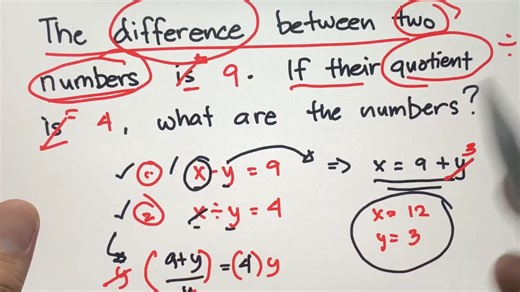 The difference between two
numbers is = 9. If their quotient ÷
is = 4, what are the numbers?
✓ ① x - y = 9 ⇒ x = 9 + y 3
✓ ② x ÷ y = 4 x = 12
y = 3
y (9+y/y) = (4) y